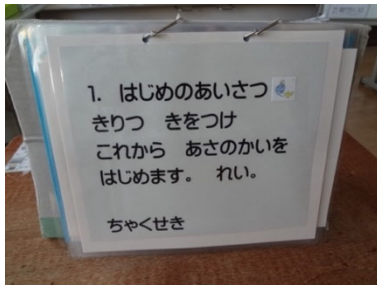 1. はじめのあいさつ
きりつ　きをつけ
これから　あさのかいを
はじめます。　れい。
ちゃくせき